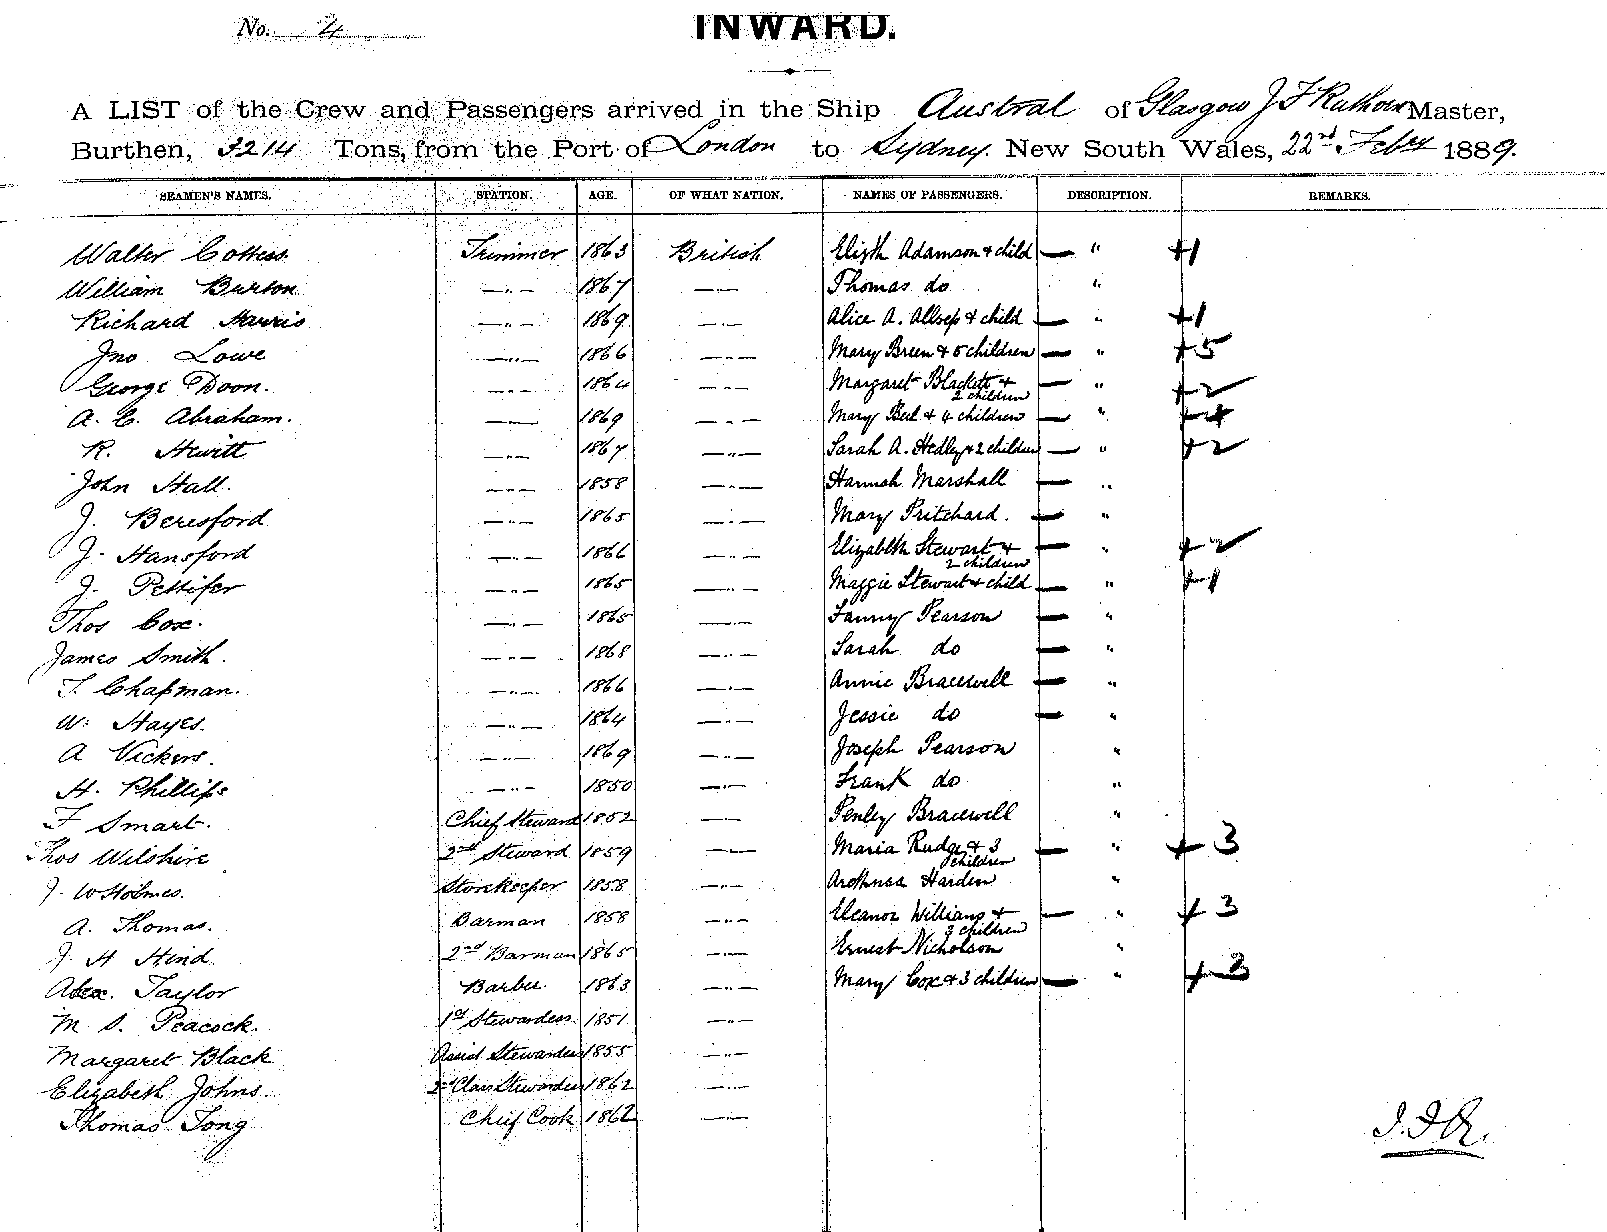 No. 4
INWARD.
A LIST of the Crew and Passengers arrived in the Ship Austral of Glasgow J F Ruthven Master,
Burthen, 3214 Tons, from the Port of London to Sydney. New South Wales, 22nd Febry 1889.
SEAMEN'S NAMES. STATION. AGE. OF WHAT NATION. NAMES OF PASSENGERS. DESCRIPTION. REMARKS.
Walter Trimmer 1863 British Elizth Adamson & child — " +1
William Burton —"— 1867 —— Thomas do "
Richard Harris —"— 1869 —"— Alice A. & child — " +1
Jno Lowe —"— 1866 —"— Mary Breen & 5 children — " +5
George Doon. —"— 1864 —"— Margaret Blackett & 2 children — " +2
A. C. Abraham. —— 1869 —"— Mary Bell & 4 children — " +4
R. Hewitt —"— 1867 —"— Sarah A. Hedley & 2 children — " +2
John Hall. —"— 1858 —"— Hannah Marshall — "
J. Beresford —"— 1865 —"— Mary Pritchard. — "
J. Hansford —"— 1866 —"— Elizabeth Stewart & 2 children — " +2
J. Pettifer —"— 1865 —"— Maggie Stewart & child — " +1
Thos Cox. —"— 1865 —"— Fanny Pearson — "
James Smith. —"— 1868 —"— Sarah do — "
T. Chapman. —"— 1866 —"— Annie Bracewell — "
W. Hayes. —"— 1864 —"— Jessie do — "
A Vickers. —"— 1869 —"— Joseph Pearson "
H. Phillips —"— 1850 —"— Frank do "
F Smart. Chief Steward 1852 —"— Penley Bracewell "
Thos Wilshire 2nd Steward 1859 —"— Maria Rudge & 3 children — " + 3
J. W Holmes. Storekeeper 1858 —"— Harden "
A. Thomas. Barman 1858 —"— Eleanor Williams & 3 children — " + 3
J. H Hind 2nd Barman 1865 —"— Ernest Nicholson "
Alex. Taylor Barber 1863 —"— Mary Cox & 3 children — " + 3
M. S. Peacock. 1st Stewardess 1851 —"—
Margaret Black Assist Stewardess 1855 —"—
Elizabeth Johns. 2nd Class Stewardess 1862 ——
Thomas Tong Chief Cook 1862 ——
J.F.R.